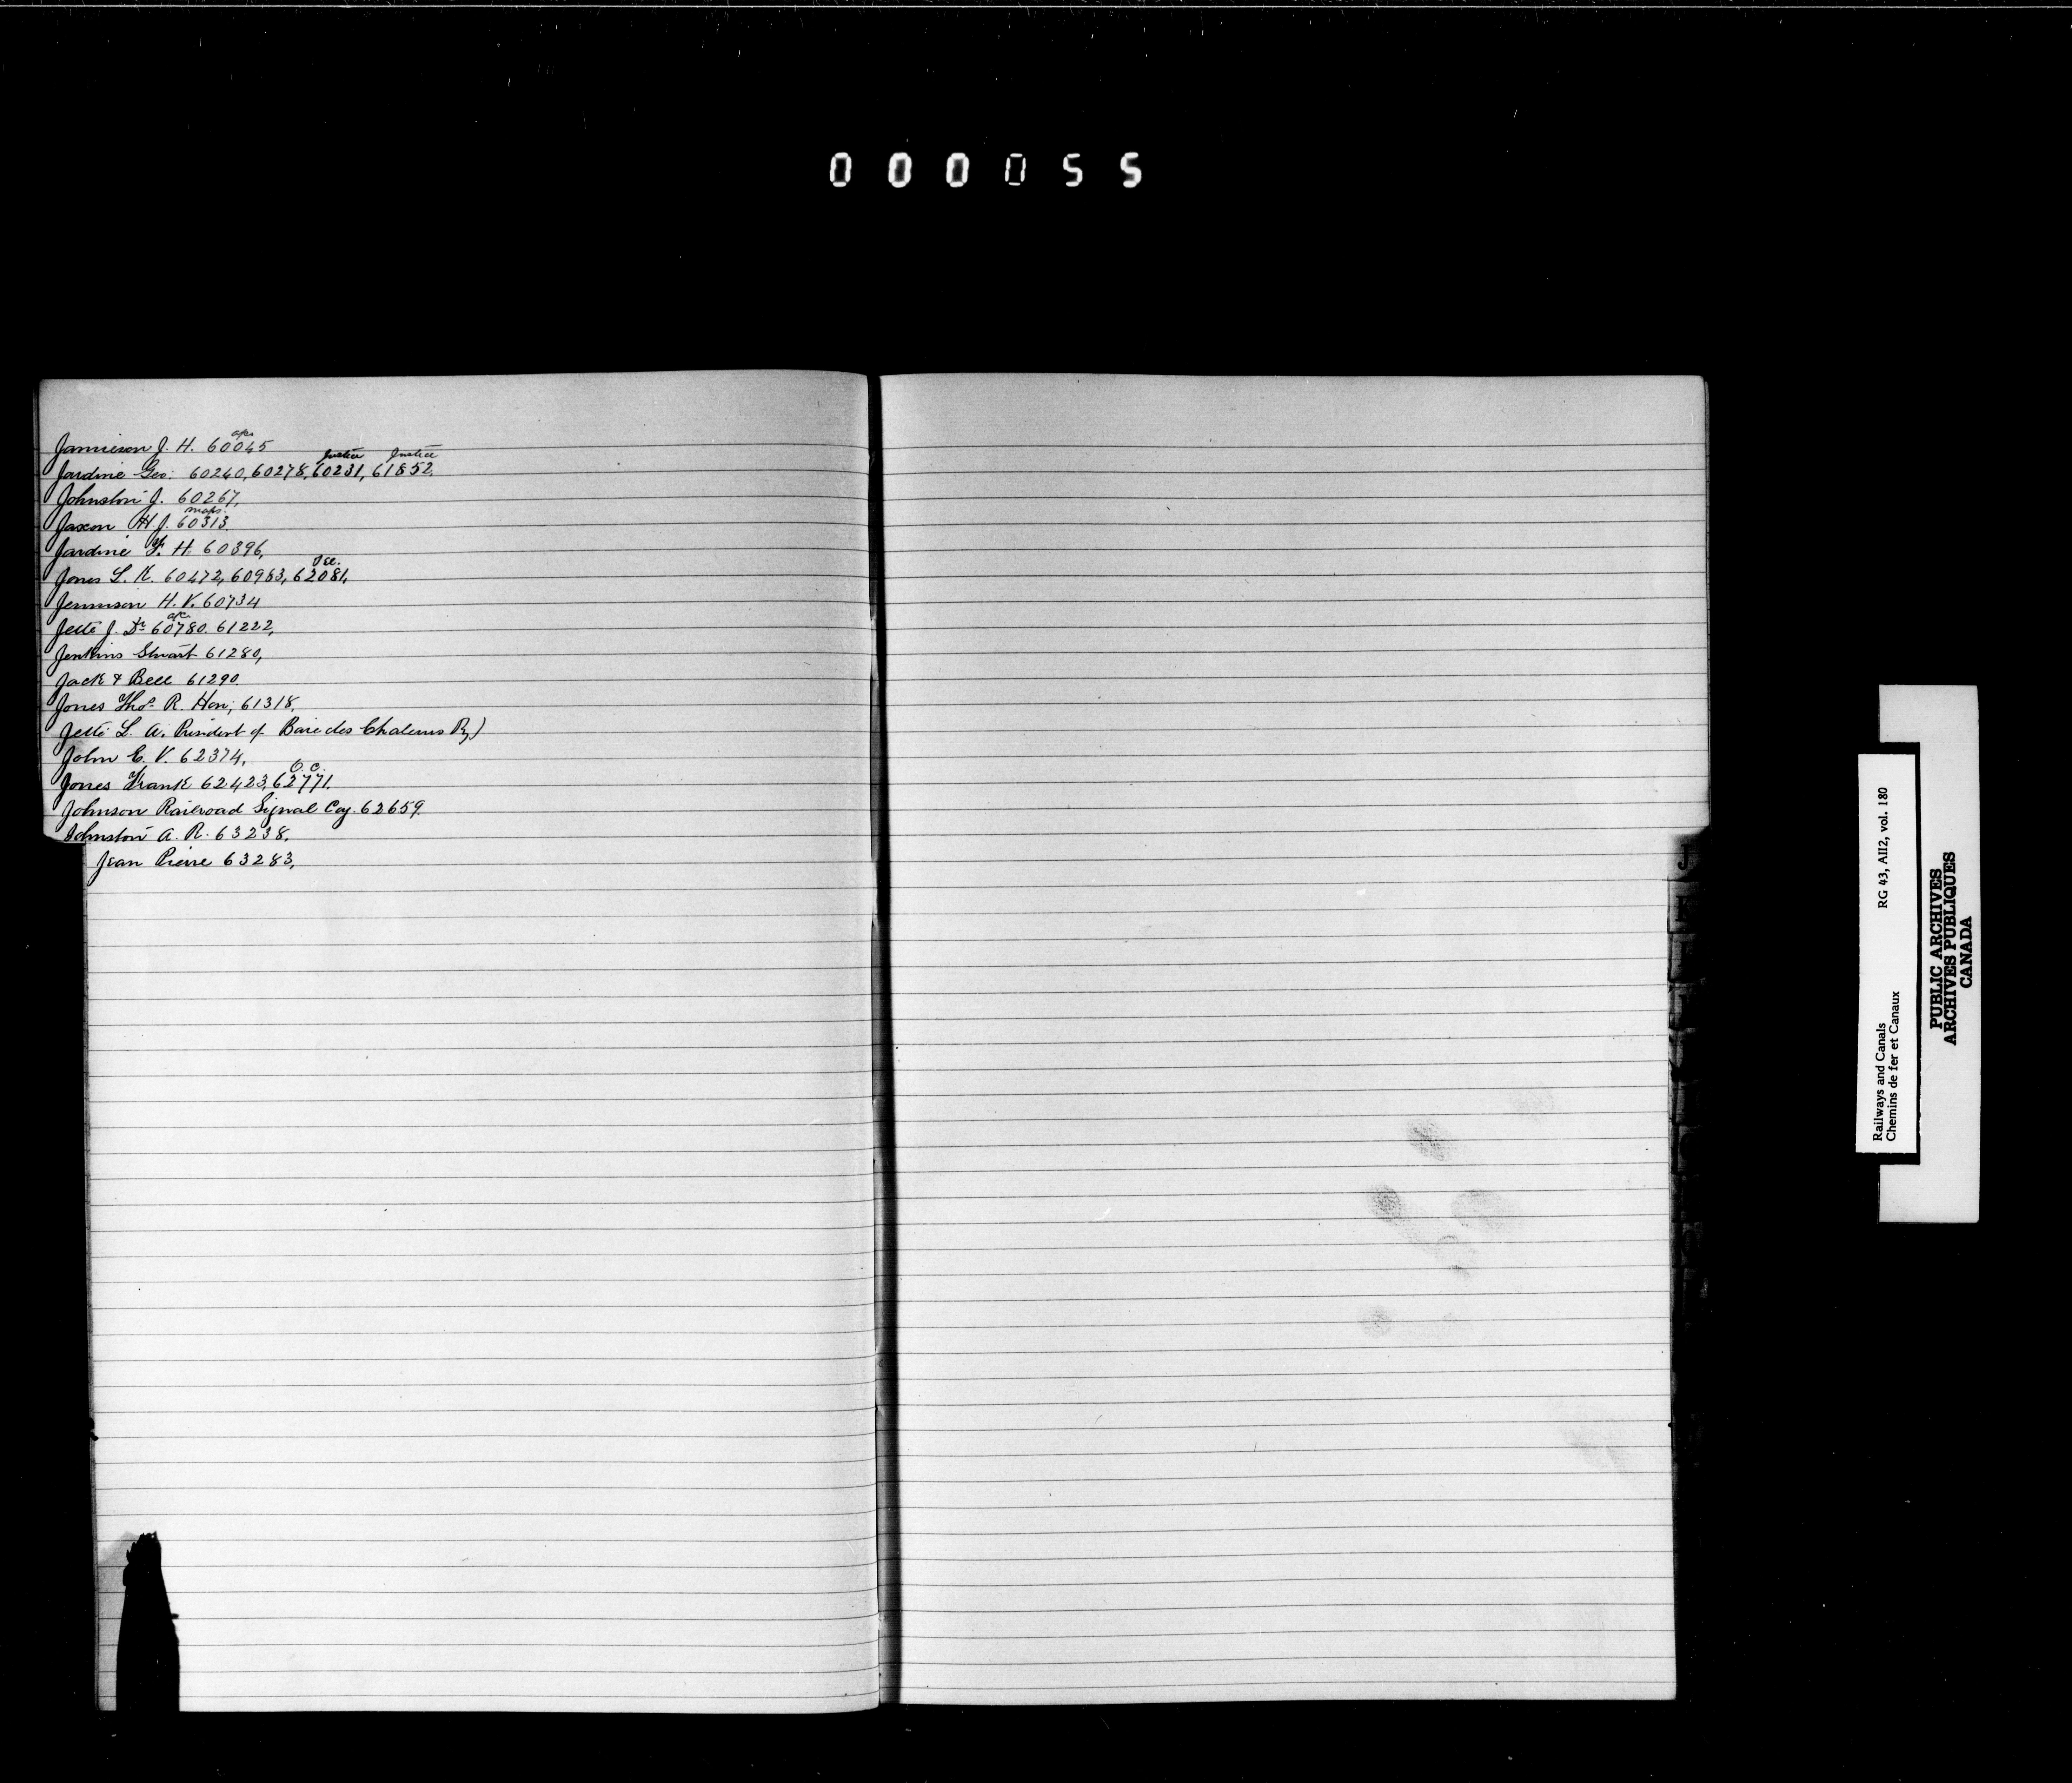 000055
Jamieson J. H. 60045
Justice Justice
Jardine Geo: 60240, 60278, 60231, 61852,
Johnston J. 60267,
maps.
Jaxon H J. 60313.
Jardine F. H. 60396,
Jones L. K. 60472, 60983, 62081,
Jennison H. V. 60734
Jetté J. Dr 60780. 61222,
Jenkins Stuart 61280,
Jack & Bell 61290.
Jones Thos. R. Hon; 61318,
Jetté L. A. President of Baie des Chaleurs Ry)
John E. V. 62374,
O. C.
Jones Frank 62423, 62771.
Johnson Railroad Signal Coy. 62659.
Johnston A. R. 63238,
Jean Pierre 63283,
J
Railways and Canals RG 43, AII2, vol. 180
Chemins de fer et Canaux
PUBLIC ARCHIVES
ARCHIVES PUBLIQUES
CANADA